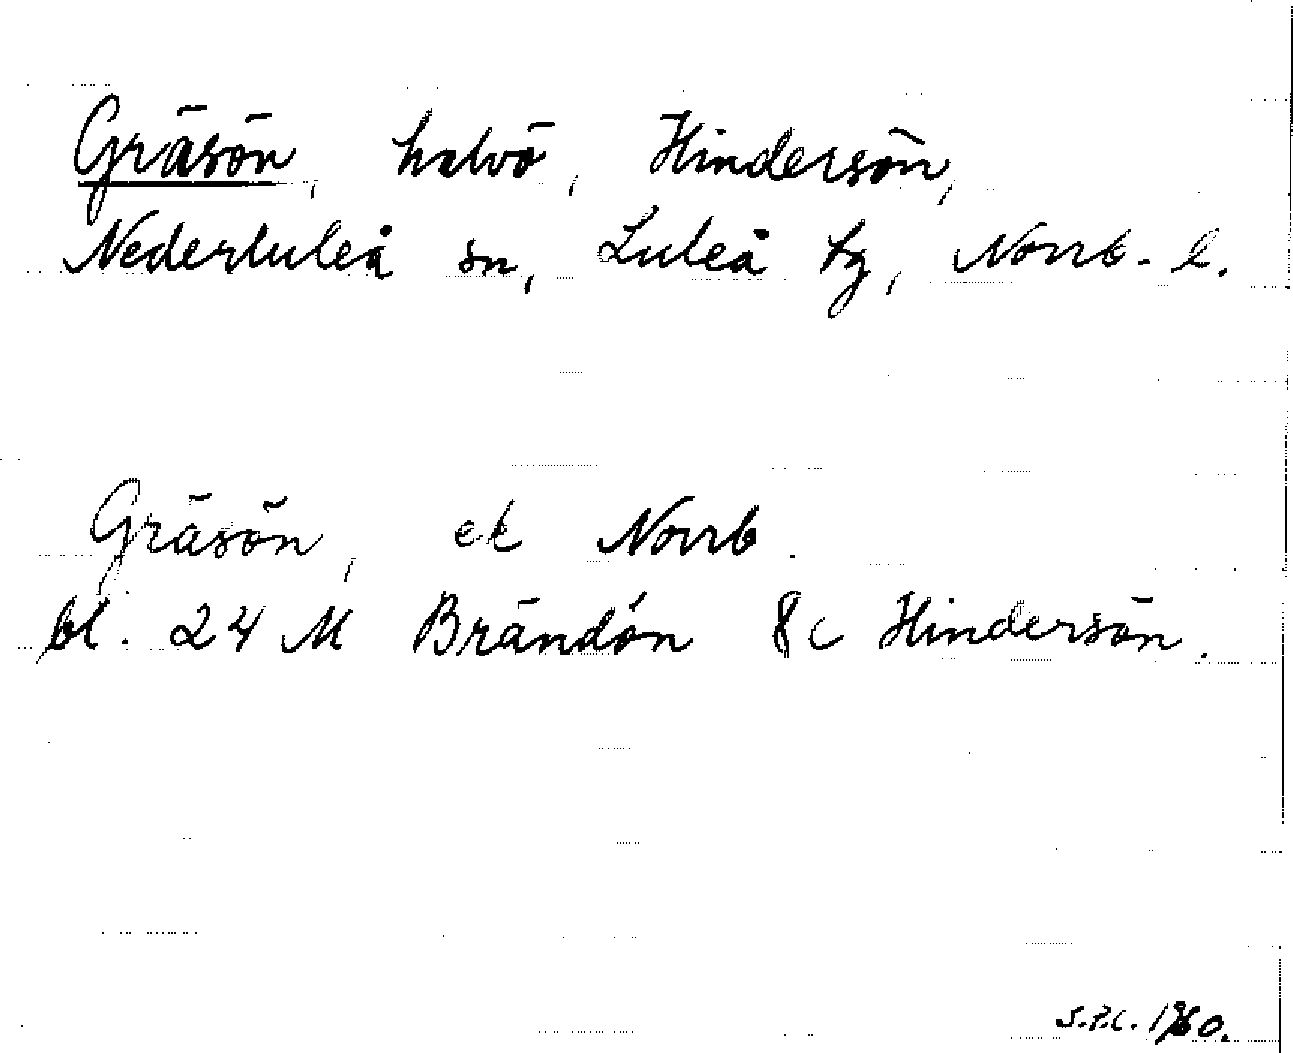 Gräsön, halvö, Hindersön,
Nederluleå sn, Luleå tg, Norrb. l.
Gräsön, ek Norrb.
bl. 24 M Brändön 8c Hindersön.
S.P.C. 1960.